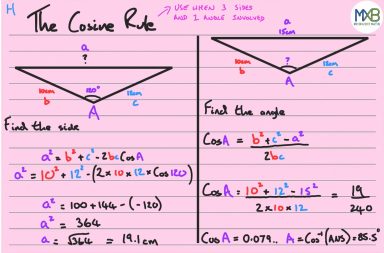 H
The Cosine Rule
→ USE WHEN 3 SIDES
AND 1 ANGLE INVOLVED
MXB
a
?
10cm
b
120°
12cm
c
A
Find the side
a² = b² + c² - 2bcCosA
a² = 10² + 12² - (2 × 10 × 12 × Cos120)
a² = 100 + 144 - (-120)
a² = 364
a = √364 = 19.1cm
a
15cm
10cm
b
?
12cm
c
A
Find the angle
CosA = b² + c² - a²
2bc
CosA = 10² + 12² - 15² = 19
2 × 10 × 12 240
CosA = 0.079.. A = Cos⁻¹(ANS) = 85.5°